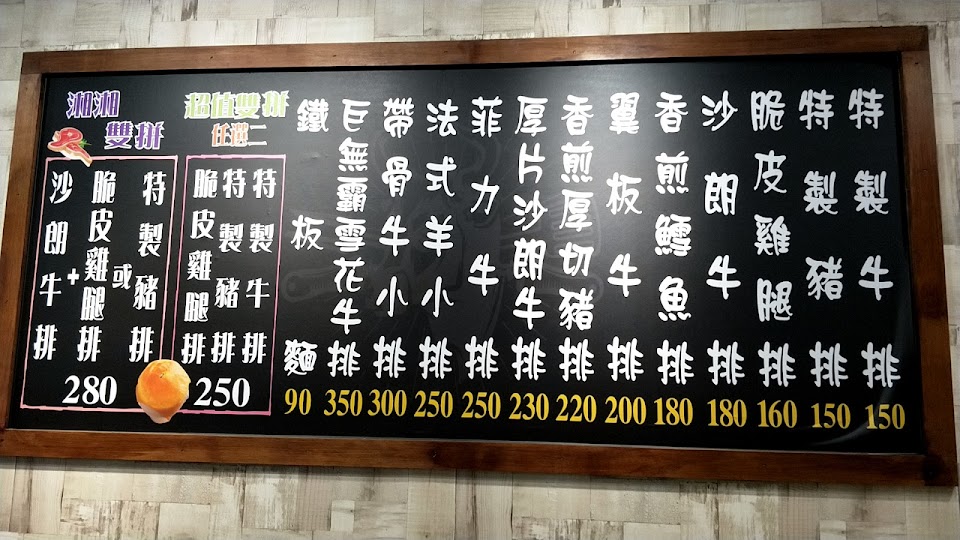 特製牛排 150
特製豬排 150
脆皮雞腿排 160
沙朗牛排 180
香煎鱈魚排 180
翼板牛排 200
香煎厚切豬排 220
厚片沙朗牛排 230
菲力牛排 250
法式羊小排 250
帶骨牛小排 300
巨無霸雪花牛排 350
鐵板麵 90
超值雙拼
任選二
特製牛排
特製豬排
脆皮雞腿排
250
湘湘
雙拼
特製豬排
或
脆皮雞腿排
+
沙朗牛排
280